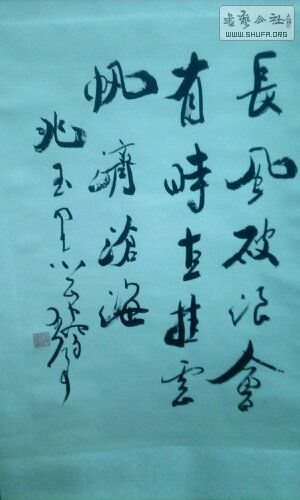 長風破浪會
有時直挂雲
帆濟滄海
兆玉
書藝公社
WWW.SHUFA.ORG